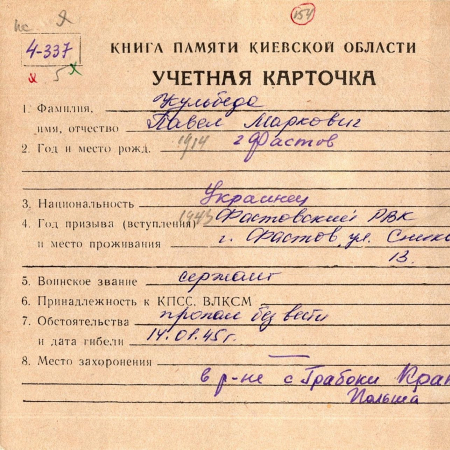 пс Я 154
4-337
х 5 х
КНИГА ПАМЯТИ КИЕВСКОЙ ОБЛАСТИ
УЧЕТНАЯ КАРТОЧКА
1. Фамилия, Кульбеда
имя, отчество Павел Маркович
2. Год и место рожд. 1914 г Фастов
3. Национальность Украинец
4. Год призыва (вступления) 1943 Фастовский РВК
и место проживания г. Фастов, ул.
13.
5. Воинское звание сержант
6. Принадлежность к КПСС. ВЛКСМ
7. Обстоятельства пропал без вести
и дата гибели 14.01.45г.
8. Место захоронения —
в р-не с Грабоки
Польша